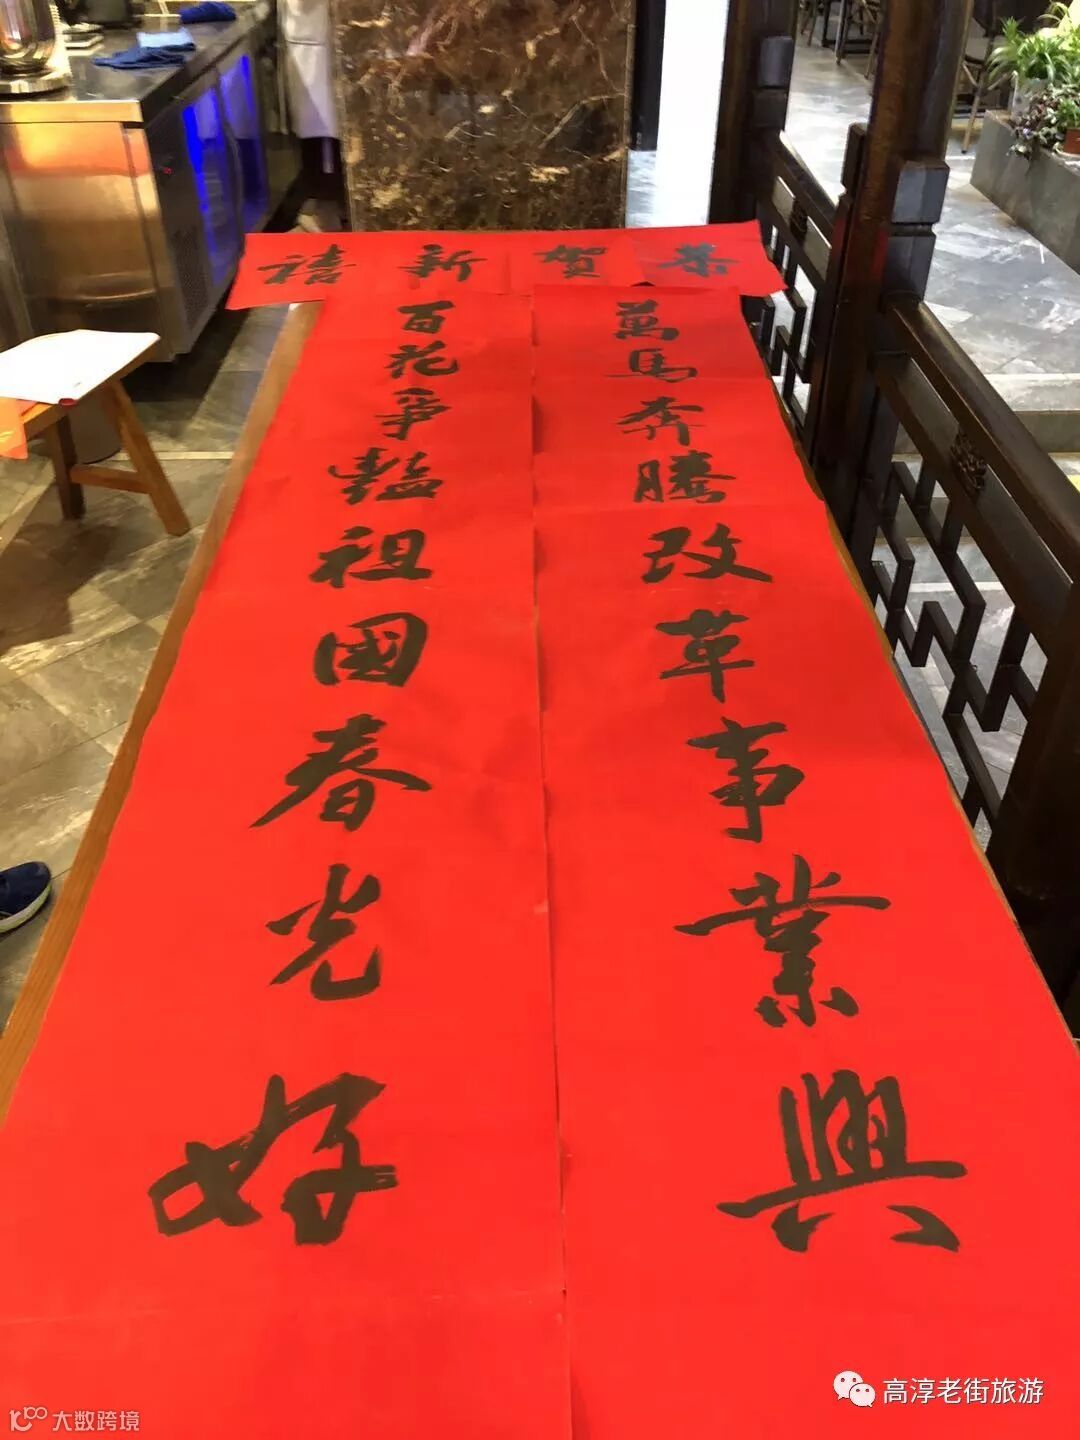 恭賀新禧
萬馬奔騰改革事業興
百花爭豔祖國春光好
高淳老街旅游
大数跨境